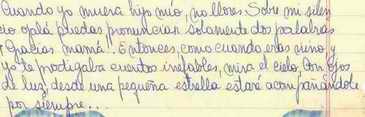 Cuando yo muera hijo mío, no llores. Sobre mi silen
cio ojalá puedas pronunciar solamente dos palabras
¡Gracias mamá!. Entonces, como cuando eras niño y
yo te prodigaba cuentos inefables, mira el cielo. Con ojos
de luz, desde una pequeña estrella estaré acompañándote
por siempre...